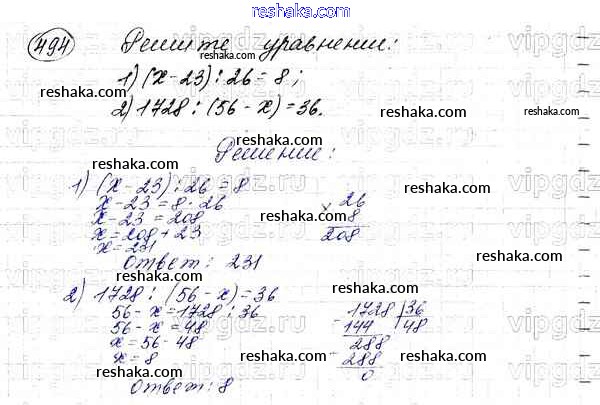 reshaka.com
494 Решите уравнении:
1) (x-23) : 26 = 8;
2) 1728 : (56 - x) = 36.
Решение:
1) (x-23) : 26 = 8
x-23 = 8·26
x-23 = 208
x = 208 + 23
x = 231
26
× 8
208
Ответ: 231
2) 1728 : (56 - x) = 36
56 - x = 1728 : 36
56 - x = 48
x = 56 - 48
x = 8
1728 | 36
- 144 48
288
- 288
0
Ответ: 8
reshaka.com
reshaka.com
reshaka.com
reshaka.com
reshaka.com
reshaka.com
reshaka.com
reshaka.com
reshaka.com
reshaka.com
reshaka.com
reshaka.com
reshaka.com
reshaka.com
vipgdz.ru